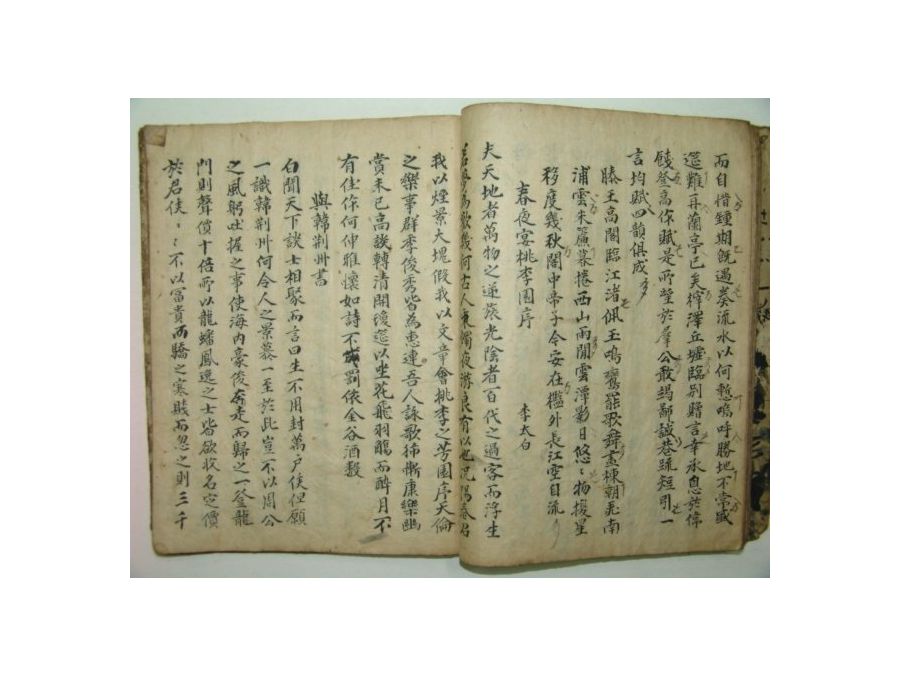 而自惜鍾期既遇奏流水以何慙嗚呼勝地不常盛
筵難再蘭亭已矣梓澤丘墟臨別贈言幸承恩於偉
餞登高作賦是所望於羣公敢竭鄙誠恭疏短引一
言均賦四韻俱成
滕王高閣臨江渚佩玉鳴鸞罷歌舞畫棟朝飛南
浦雲朱簾暮捲西山雨閒雲潭影日悠〻物換星
移度幾秋閣中帝子今安在檻外長江空自流
春夜宴桃李園序 李太白
夫天地者萬物之逆旅光陰者百代之過客而浮生
若夢為歡幾何古人秉燭夜游良有以也況陽春召
我以煙景大塊假我以文章會桃李之芳園序天倫
之樂事群季俊秀皆為惠連吾人詠歌獨慚康樂幽
賞未已高談轉清開瓊筵以坐花飛羽觴而醉月不
有佳作何伸雅懷如詩不成罰依金谷酒數
與韓荊州書
白聞天下談士相聚而言曰生不用封萬戶侯但願
一識韓荊州何令人之景慕一至於此豈不以周公
之風躬吐握之事使海內豪俊奔走而歸之一登龍
門則聲價十倍所以龍蟠鳳逸之士皆欲收名定價
於君侯〻〻不以富貴而驕之寒賤而忽之則三千